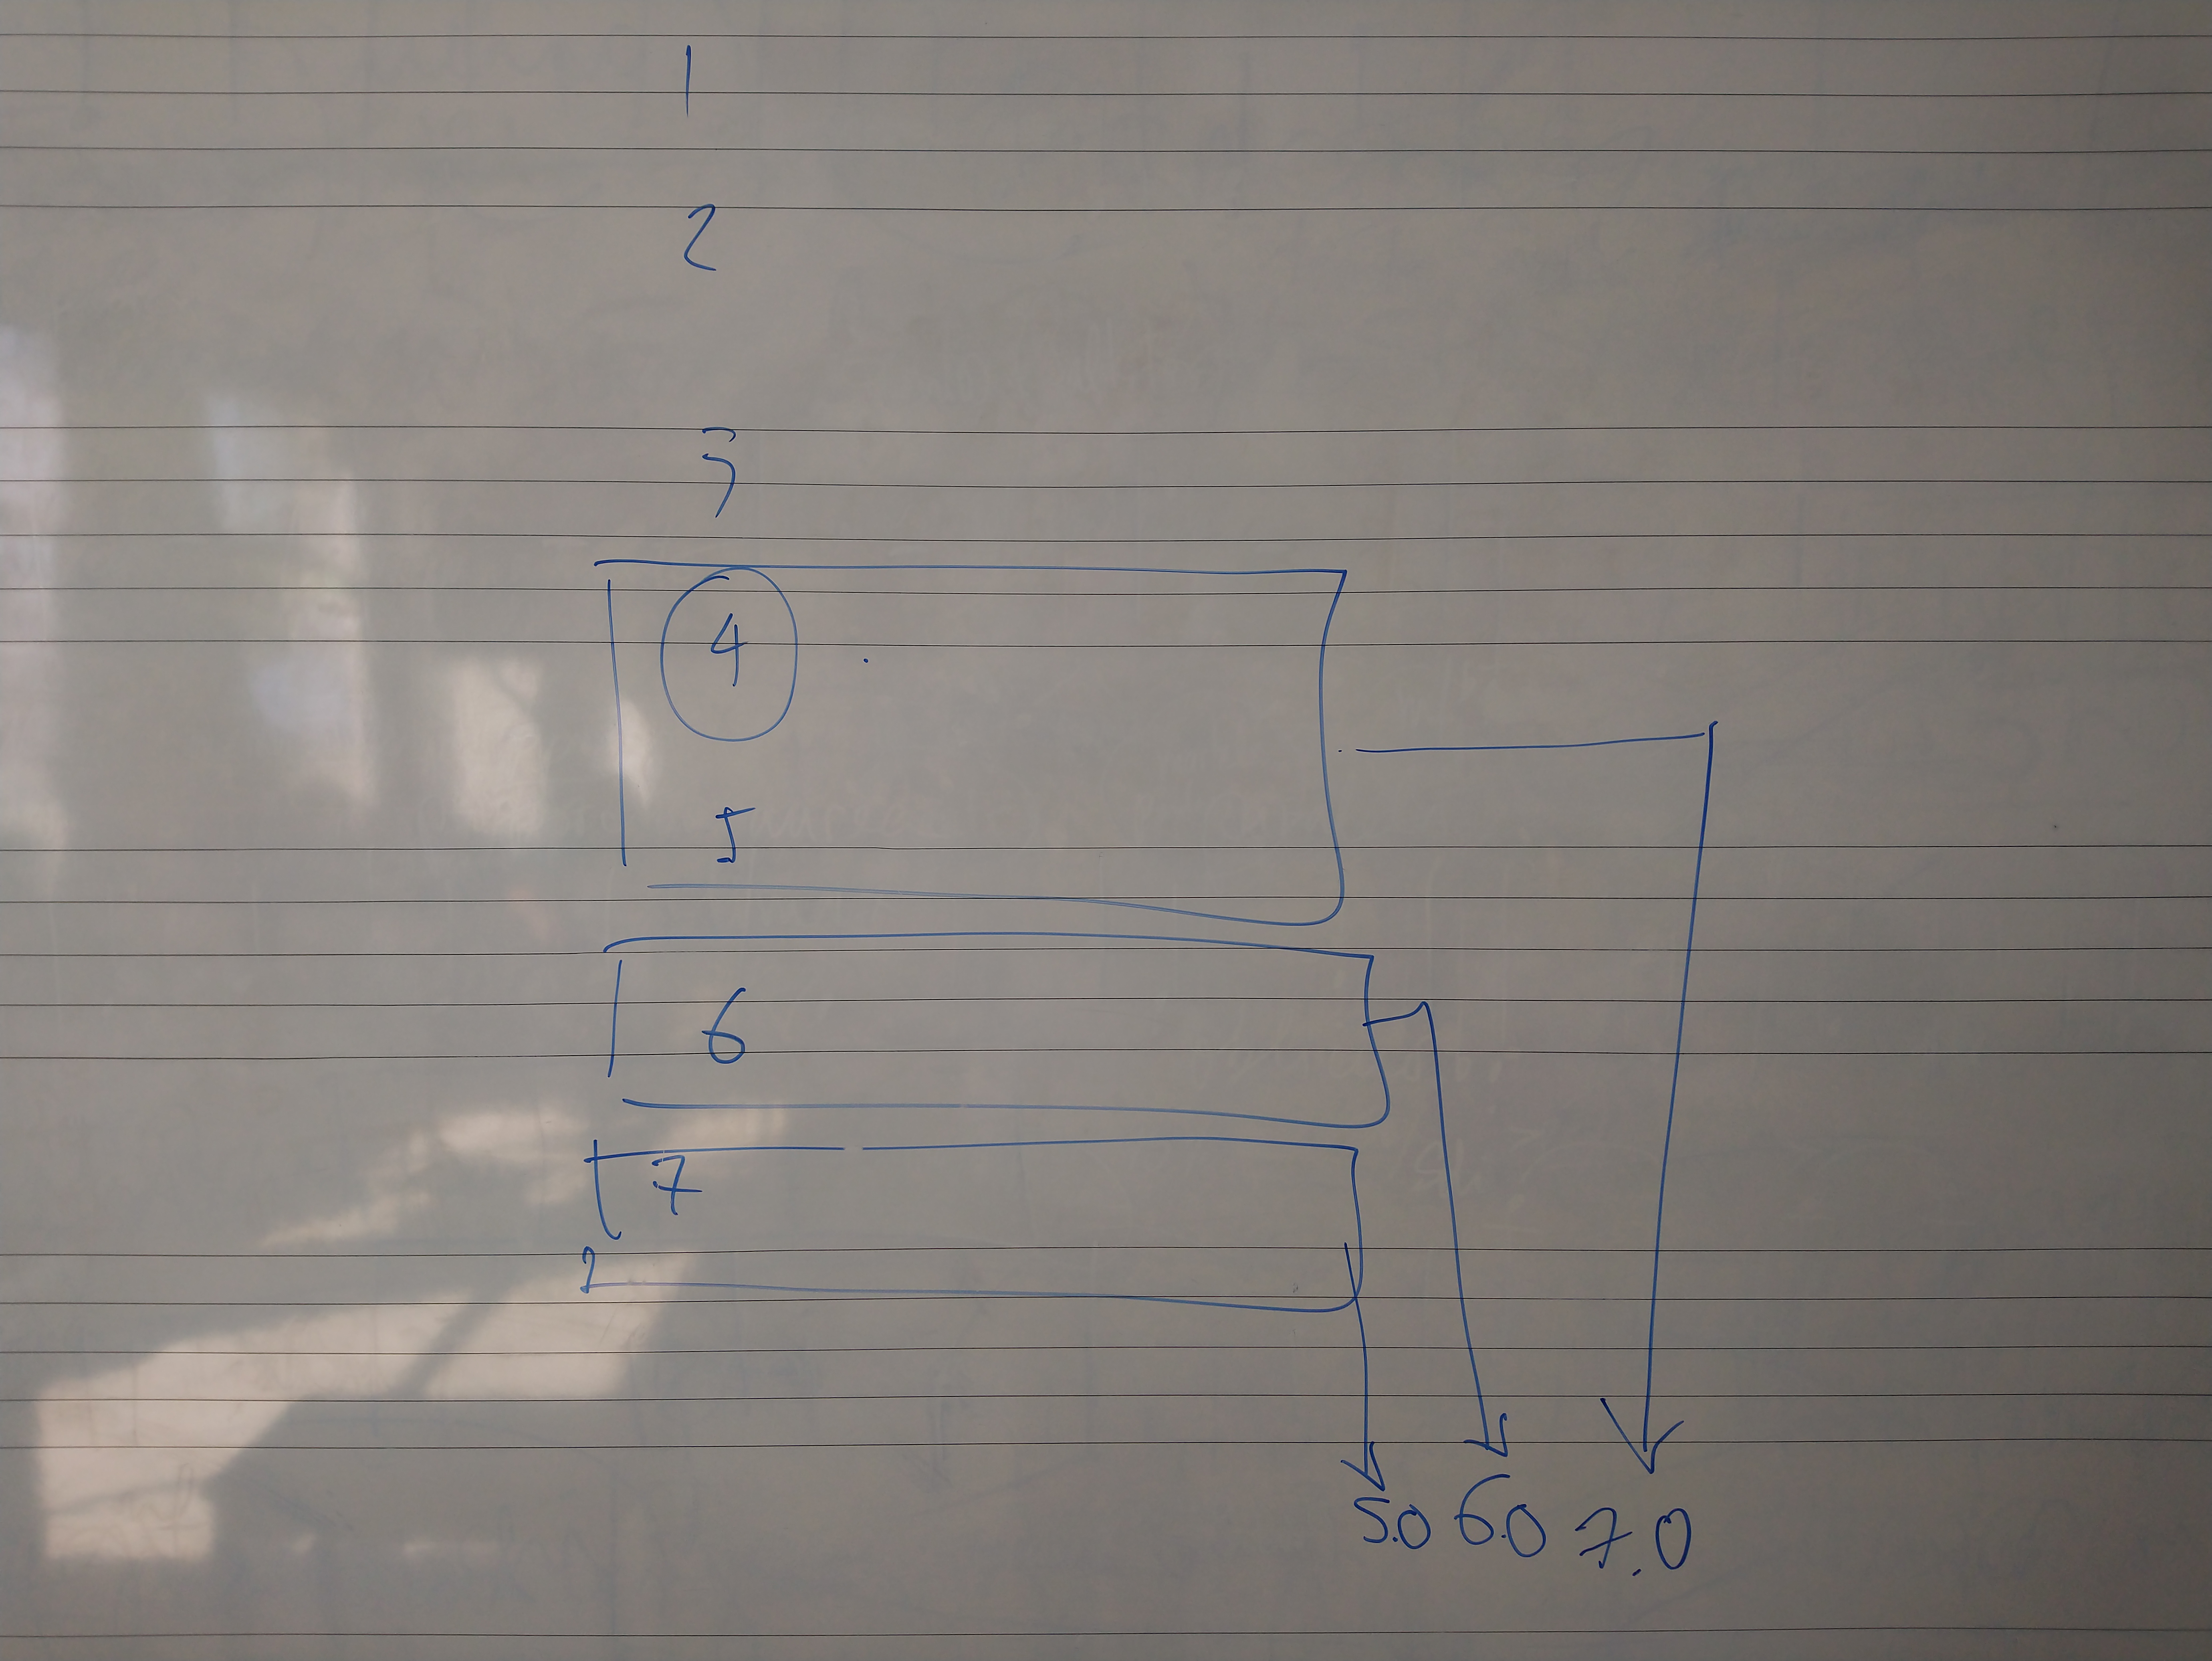 1
2
3
4
5
6
7
5.0 6.0 7.0